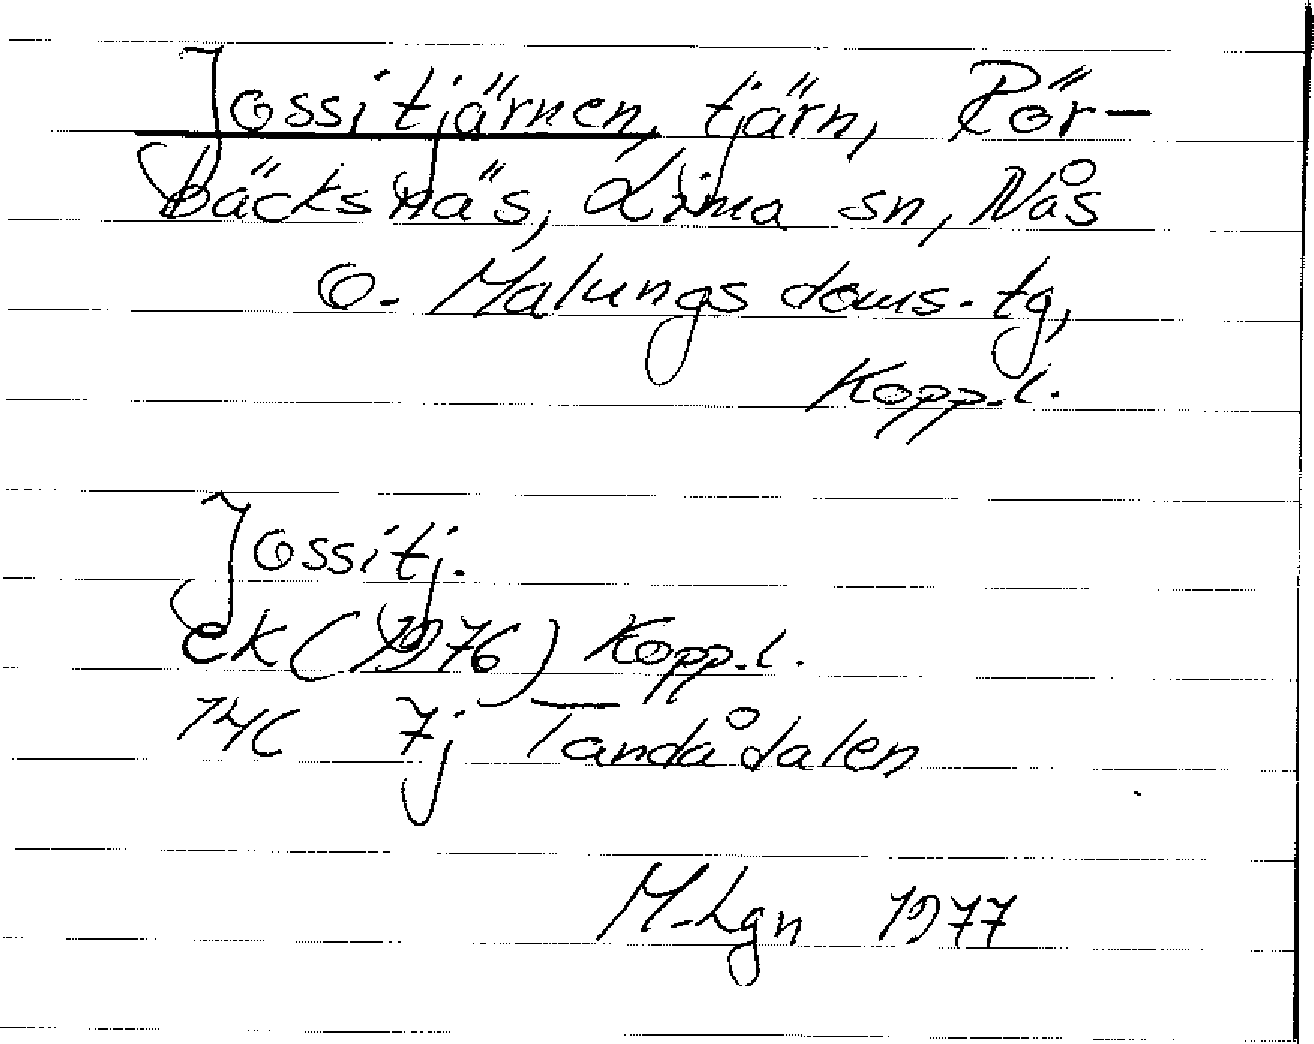 Jossitjärnen, tjärn, Rör-
bäcksnäs, Lima sn, Nås
o. Malungs doms. tg,
Kopp. l.
Jossitj.
ek (1976) Kopp. l.
14C 7j Tandådalen
M-Lgn 1977